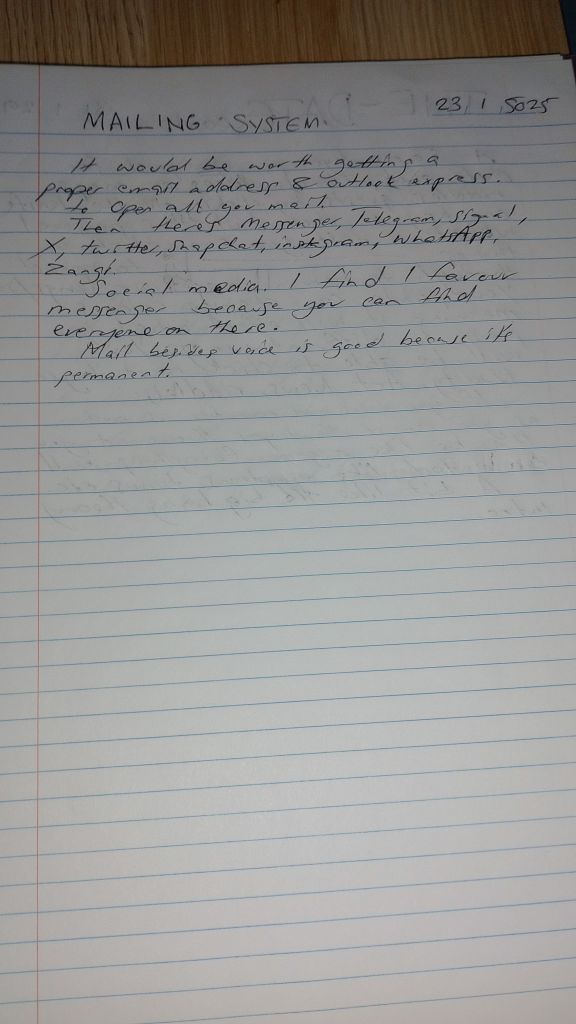 23/1/5025
MAILING SYSTEM.
It would be worth getting a
proper email address & outlook express.
to open all you mail.
Then there's Messenger, Telegram, signal,
X, twitter, snapchat, instegram, WhatsApp,
Zangi.
Social media. I find I favour
messenger because you can find
everyone on there.
Mail besides voice is good because it's
permanent.